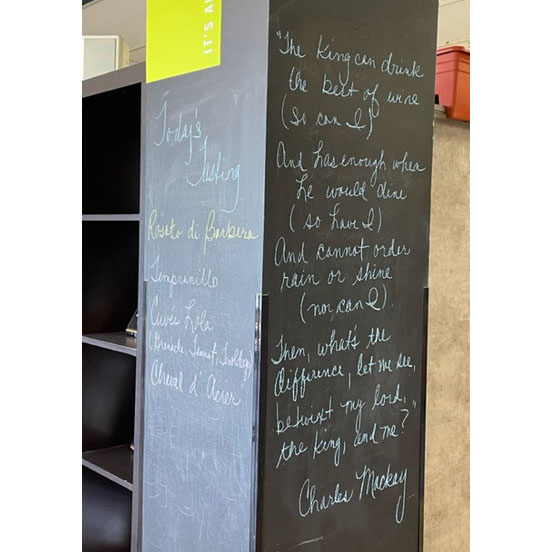 IT'S A
Today's
Tasting
Rosato di Barbera
Tempranillo
Cuvee Lola
(Grenache, Tannat,
Cheval d' Acier
"The King can drink
the best of wine
(So can I)
And has enough when
he would dine
(so have I)
And cannot order
rain or shine
(nor can I).
Then, what's the
difference, let me see,
betwixt my lord,
the king, and me?"
Charles Mackay